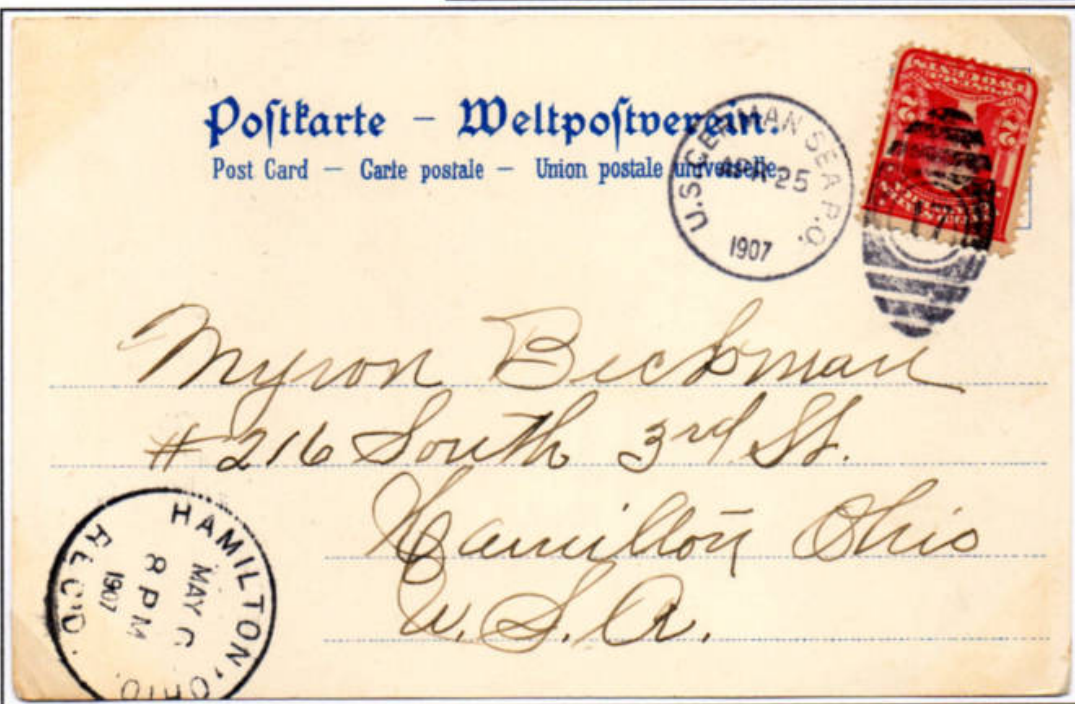 Postkarte – Weltpostverein.
Post Card – Carte postale – Union postale universelle
U.S. GERMAN SEA P.O.
APR 25
1907
17
2 2
Myron Beckman
# 216 South 3rd St.
Hamilton Ohio
U.S.A.
HAMILTON, OHIO.
MAY 6
8 PM
1907
REC'D.